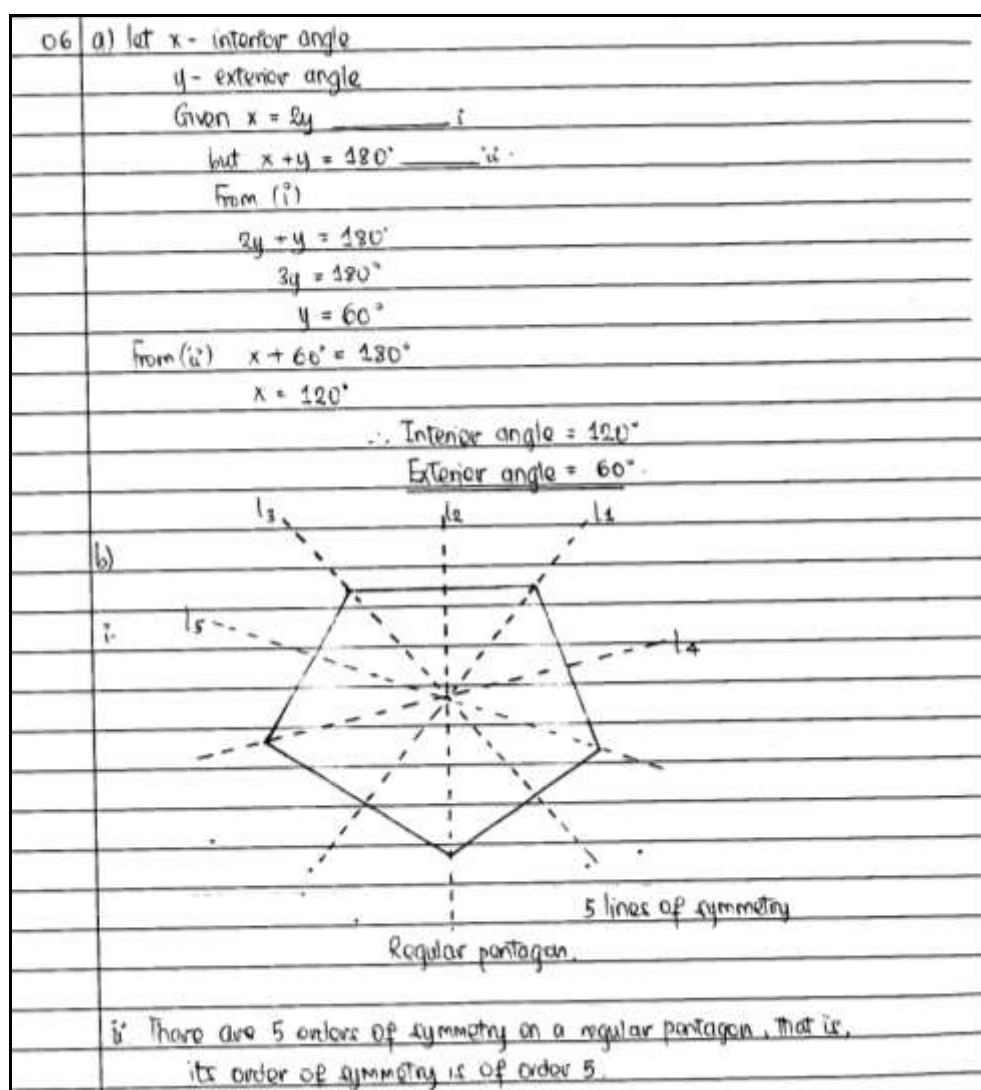 06 a) let x - interior angle
y - exterior angle
Given x = 2y ________ i
but x + y = 180° ______ ii.
From (i)
2y + y = 180°
3y = 180°
y = 60°
From (ii) x + 60° = 180°
x = 120°
∴ Interior angle = 120°
Exterior angle = 60°.
l3 l2 l1
b)
i. l5 l4
5 lines of symmetry
Regular pentagon.
ii There are 5 orders of symmetry on a regular pentagon, that is,
its order of symmetry is of order 5.